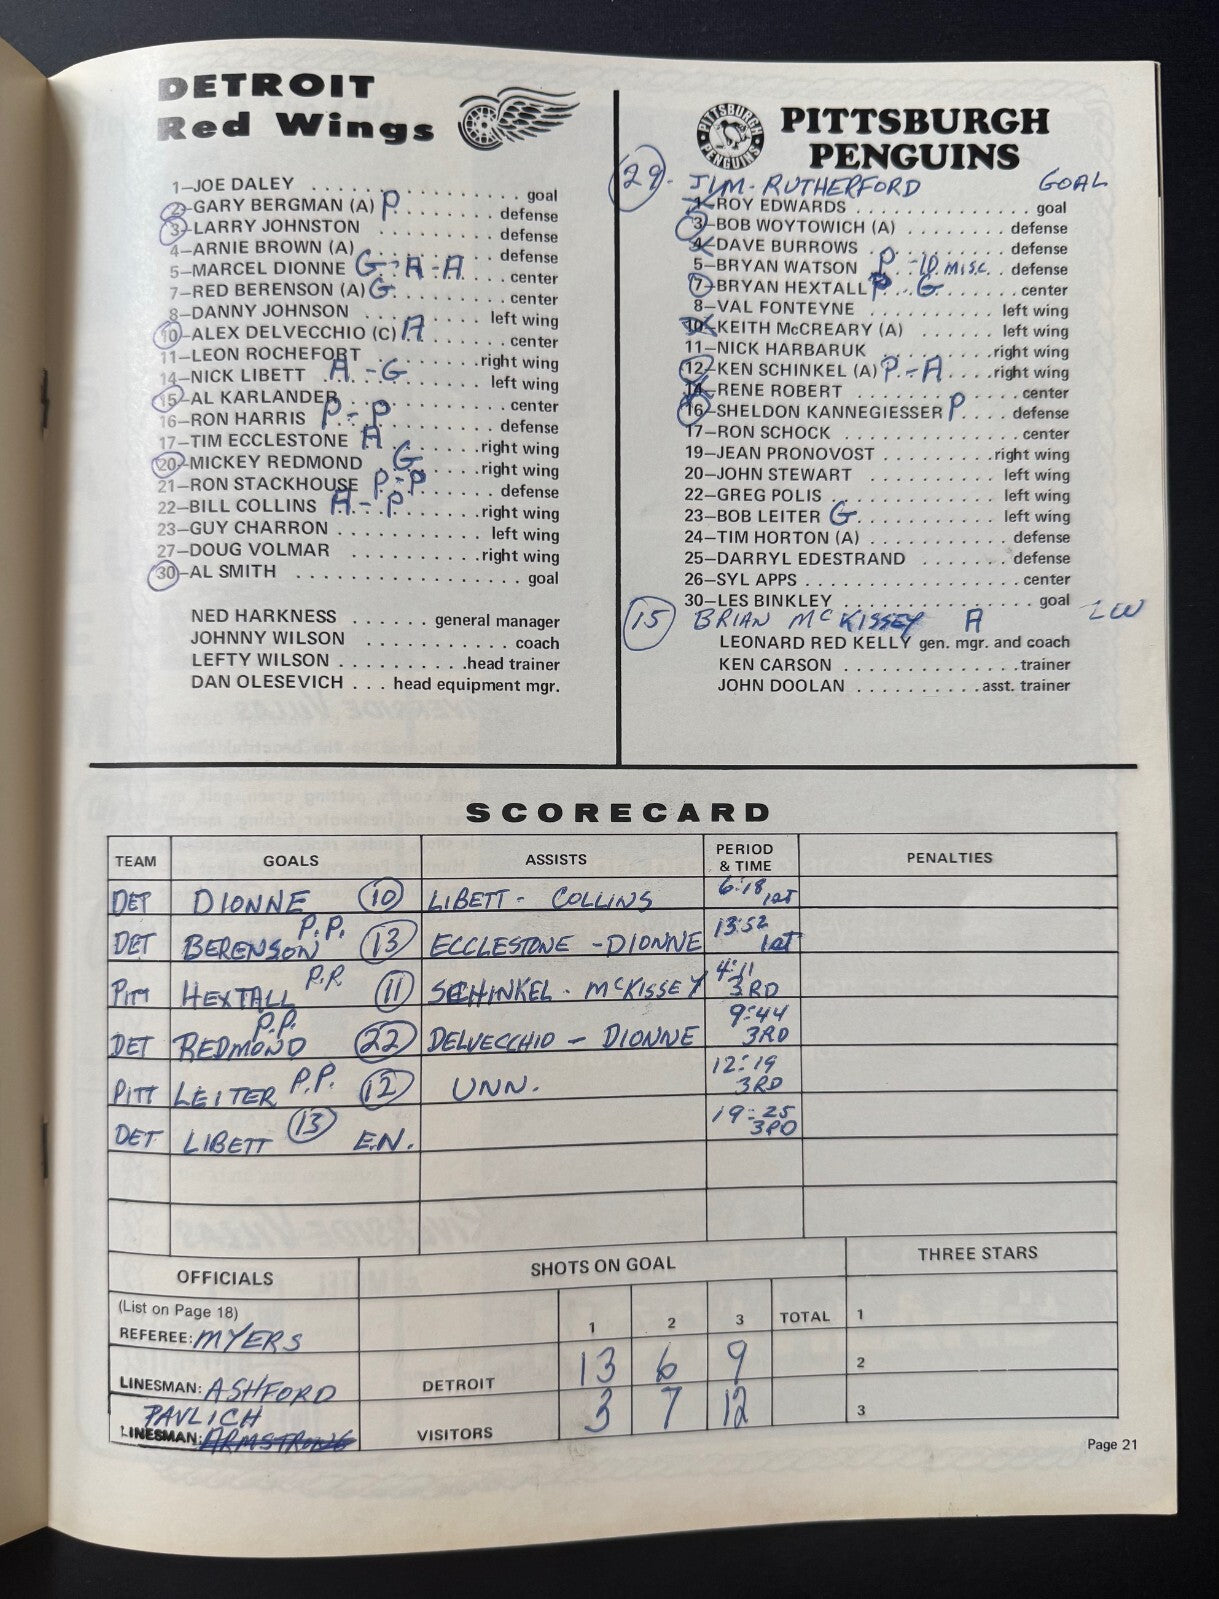 DETROIT
Red Wings
1—JOE DALEY . . . . . . . . . . . . . . . . goal
2—GARY BERGMAN (A) P . . . . . . . . defense
3—LARRY JOHNSTON . . . . . . . . defense
4—ARNIE BROWN (A) . . . . . . . . . defense
5—MARCEL DIONNE G - A - A . . . . center
7—RED BERENSON (A) G . . . . . . . . center
8—DANNY JOHNSON . . . . . . . . left wing
10—ALEX DELVECCHIO (C) A . . . . . center
11—LEON ROCHEFORT . . . . . . . . right wing
14—NICK LIBETT A - G . . . . . left wing
15—AL KARLANDER . . . . . . . . . center
16—RON HARRIS P - P . . . . . . . defense
17—TIM ECCLESTONE A . . . . . . right wing
20—MICKEY REDMOND G . . . . right wing
21—RON STACKHOUSE P - P . . . . . . defense
22—BILL COLLINS A - P . . . . . right wing
23—GUY CHARRON . . . . . . . . . . . left wing
27—DOUG VOLMAR . . . . . . . . . . right wing
30—AL SMITH . . . . . . . . . . . . . . . . . goal
NED HARKNESS . . . . . . general manager
JOHNNY WILSON . . . . . . . . . . . coach
LEFTY WILSON . . . . . . . . . . head trainer
DAN OLESEVICH . . . head equipment mgr.
PITTSBURGH PENGUINS
PITTSBURGH
PENGUINS
29 - JIM RUTHERFORD GOAL
1—ROY EDWARDS . . . . . . . . . . . . . . goal
3—BOB WOYTOWICH (A) . . . . . . . . defense
4—DAVE BURROWS . . . . . . . . . . . defense
5—BRYAN WATSON P - 10 MISC. . . defense
7—BRYAN HEXTALL P . . G . . . . . . . center
8—VAL FONTEYNE . . . . . . . . . . . left wing
10—KEITH McCREARY (A) . . . . . . left wing
11—NICK HARBARUK . . . . . . . . . right wing
12—KEN SCHINKEL (A) P - A . . . . right wing
14—RENE ROBERT . . . . . . . . . . . . center
16—SHELDON KANNEGIESSER P . . defense
17—RON SCHOCK . . . . . . . . . . . . . center
19—JEAN PRONOVOST . . . . . . . . right wing
20—JOHN STEWART . . . . . . . . . . left wing
22—GREG POLIS . . . . . . . . . . . . left wing
23—BOB LEITER G . . . . . . . . . left wing
24—TIM HORTON (A) . . . . . . . . . . defense
25—DARRYL EDESTRAND . . . . . . . defense
26—SYL APPS . . . . . . . . . . . . . . . center
30—LES BINKLEY . . . . . . . . . . . . . goal
15 BRIAN McKISSEY A LW
LEONARD RED KELLY gen. mgr. and coach
KEN CARSON . . . . . . . . . . . . . trainer
JOHN DOOLAN . . . . . . . . . asst. trainer
SCORECARD
TEAM GOALS ASSISTS PERIOD & TIME PENALTIES
DET DIONNE 10 LIBETT - COLLINS 6:18 1ST
DET BERENSON P.P. 13 ECCLESTONE - DIONNE 13:52 1ST
PITT HEXTALL P.P. 11 SCHINKEL - McKISSEY 4:11 3RD
DET REDMOND P.P. 22 DELVECCHIO - DIONNE 9:44 3RD
PITT LEITER P.P. 12 UNN. 12:19 3RD
DET LIBETT 13 E.N. 19:25 3RD
OFFICIALS SHOTS ON GOAL THREE STARS
(List on Page 18) 1 2 3 TOTAL 1
REFEREE: MYERS
LINESMAN: ASHFORD DETROIT 13 6 9 2
PAVLICH
LINESMAN: ARMSTRONG VISITORS 3 7 12 3
Page 21